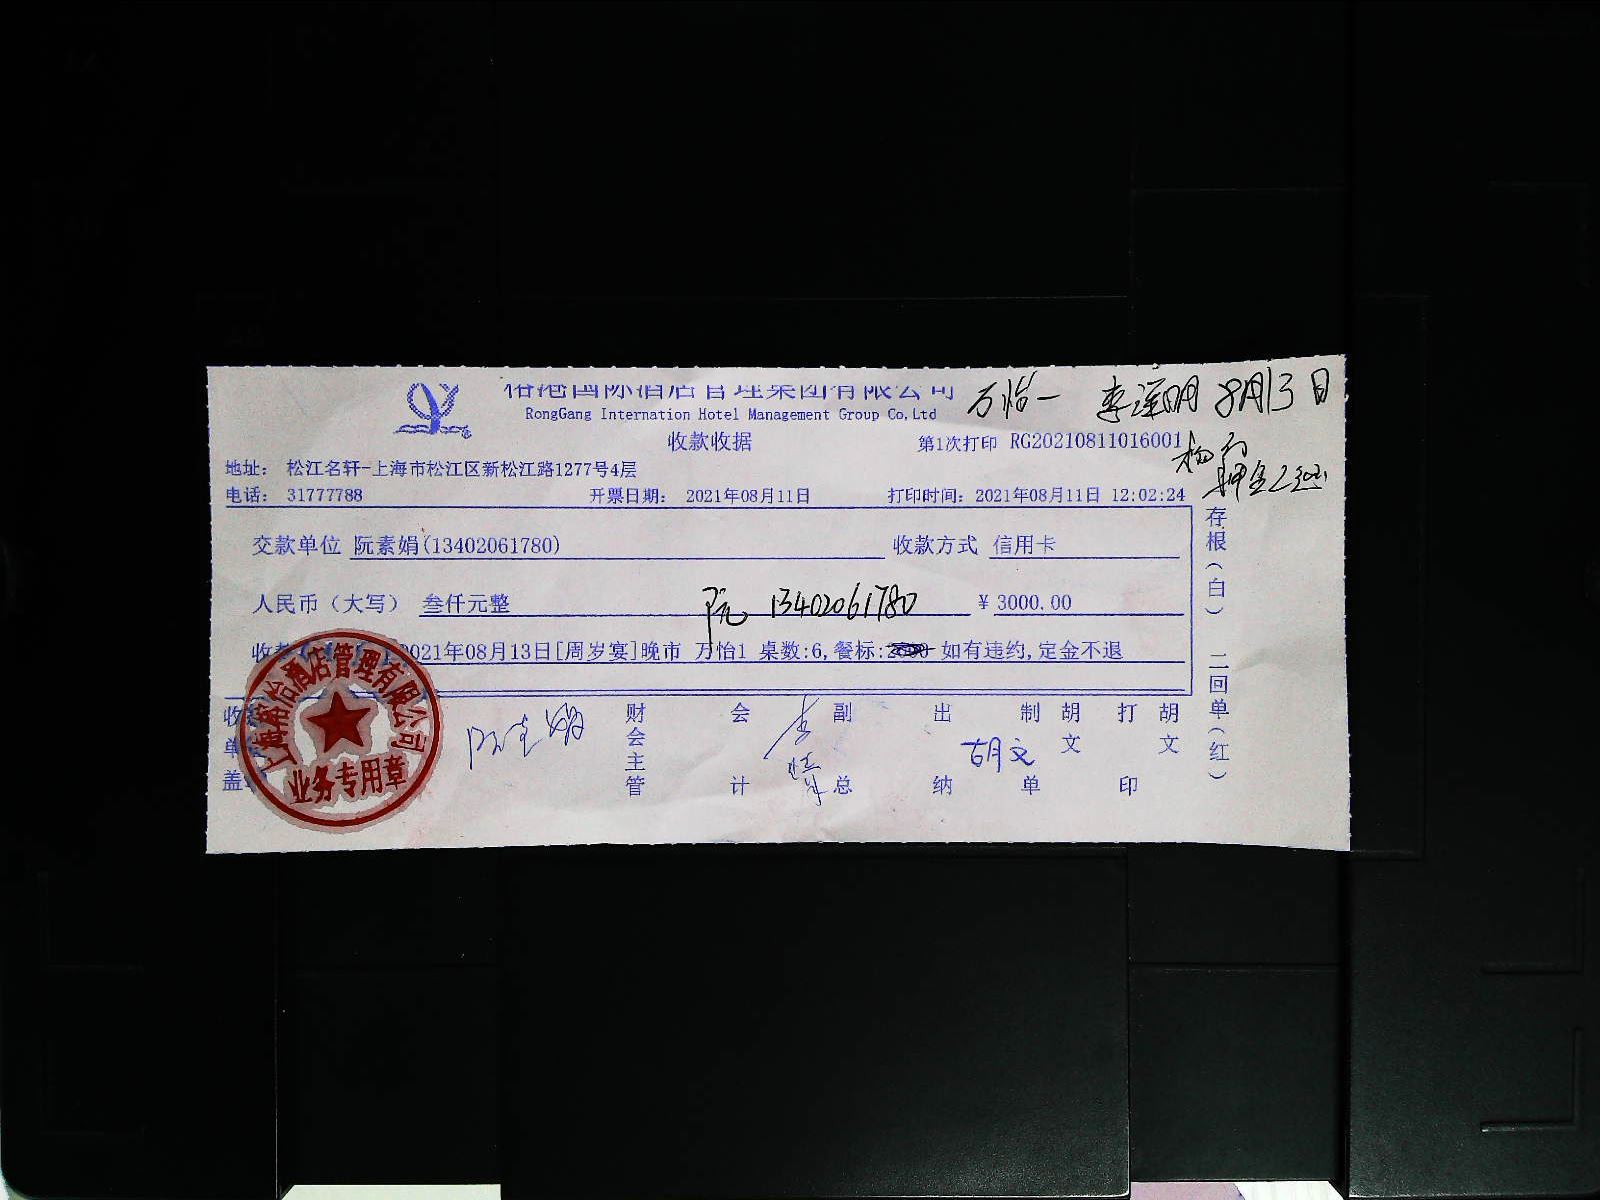 裕港国际酒店管理集团有限公司 万怡一 8月13日
RongGang Internation Hotel Management Group Co,Ltd
收款收据 第1次打印 RG20210811016001
地址： 松江名轩-上海市松江区新松江路1277号4层
电话： 31777788 开票日期： 2021年08月11日 打印时间：2021年08月11日 12:02:24
押金
存根(白) 二回单(红)
交款单位 阮素娟(13402061780) 收款方式 信用卡
人民币（大写） 叁仟元整 阮 13402061780 ¥ 3000.00
2021年08月13日[周岁宴]晚市 万怡1 桌数:6,餐标: 如有违约,定金不退
收 单 盖 阮素娟 财会主管 会计 副总 出纳 胡文 制单 胡文 打印 胡文
酒店管理有限公司
业务专用章